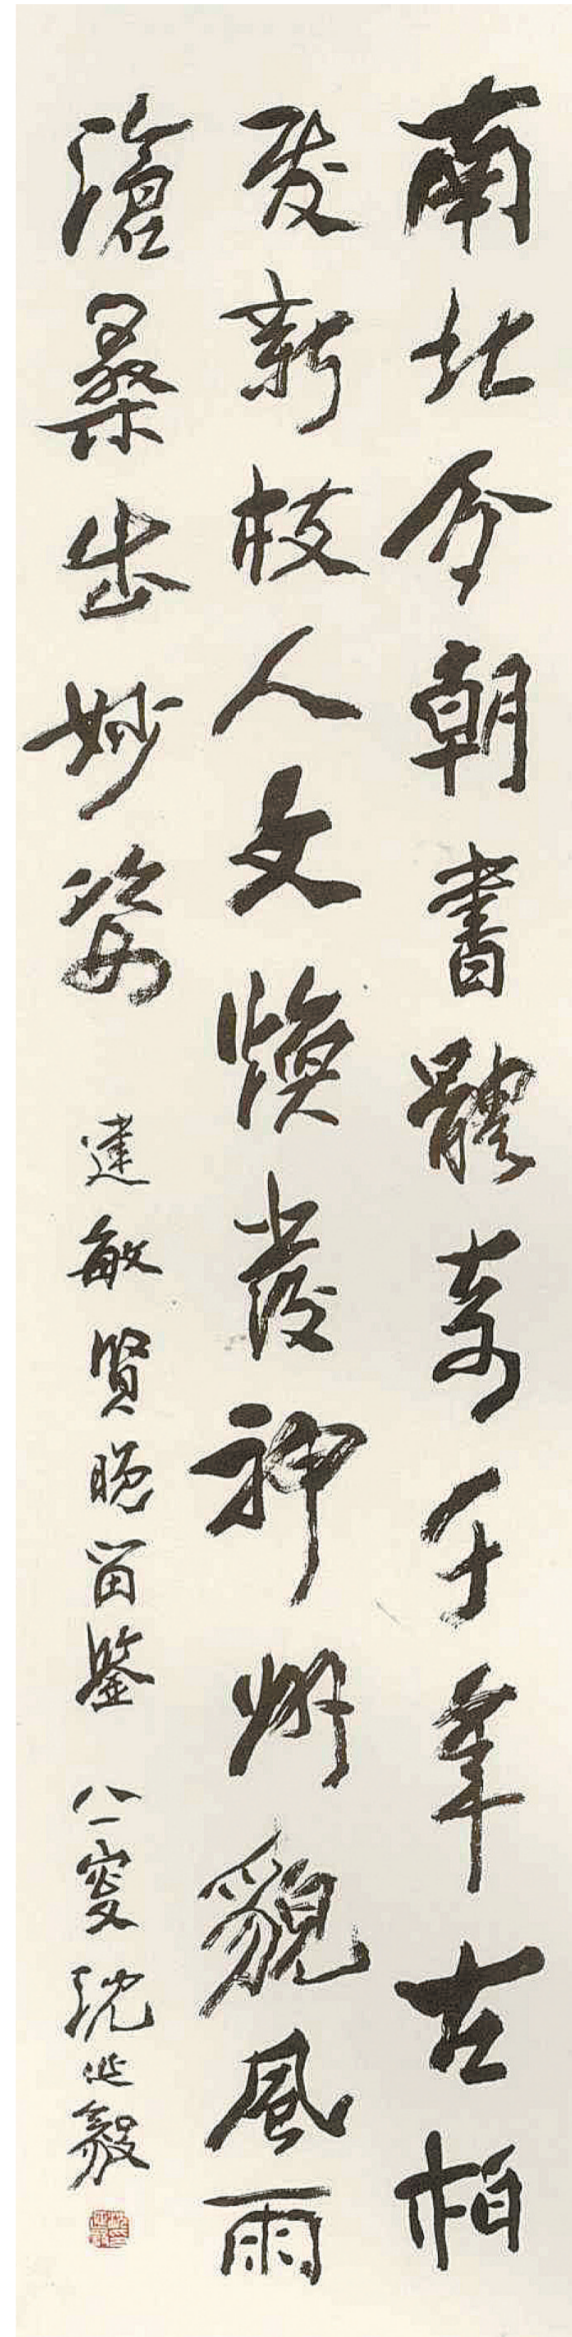 南北今朝書體奇千年古柏
發新枝人文煥發神州貌風雨
滄桑出妙姿
建敏賢晚留鑒 八一叟 沈延毅